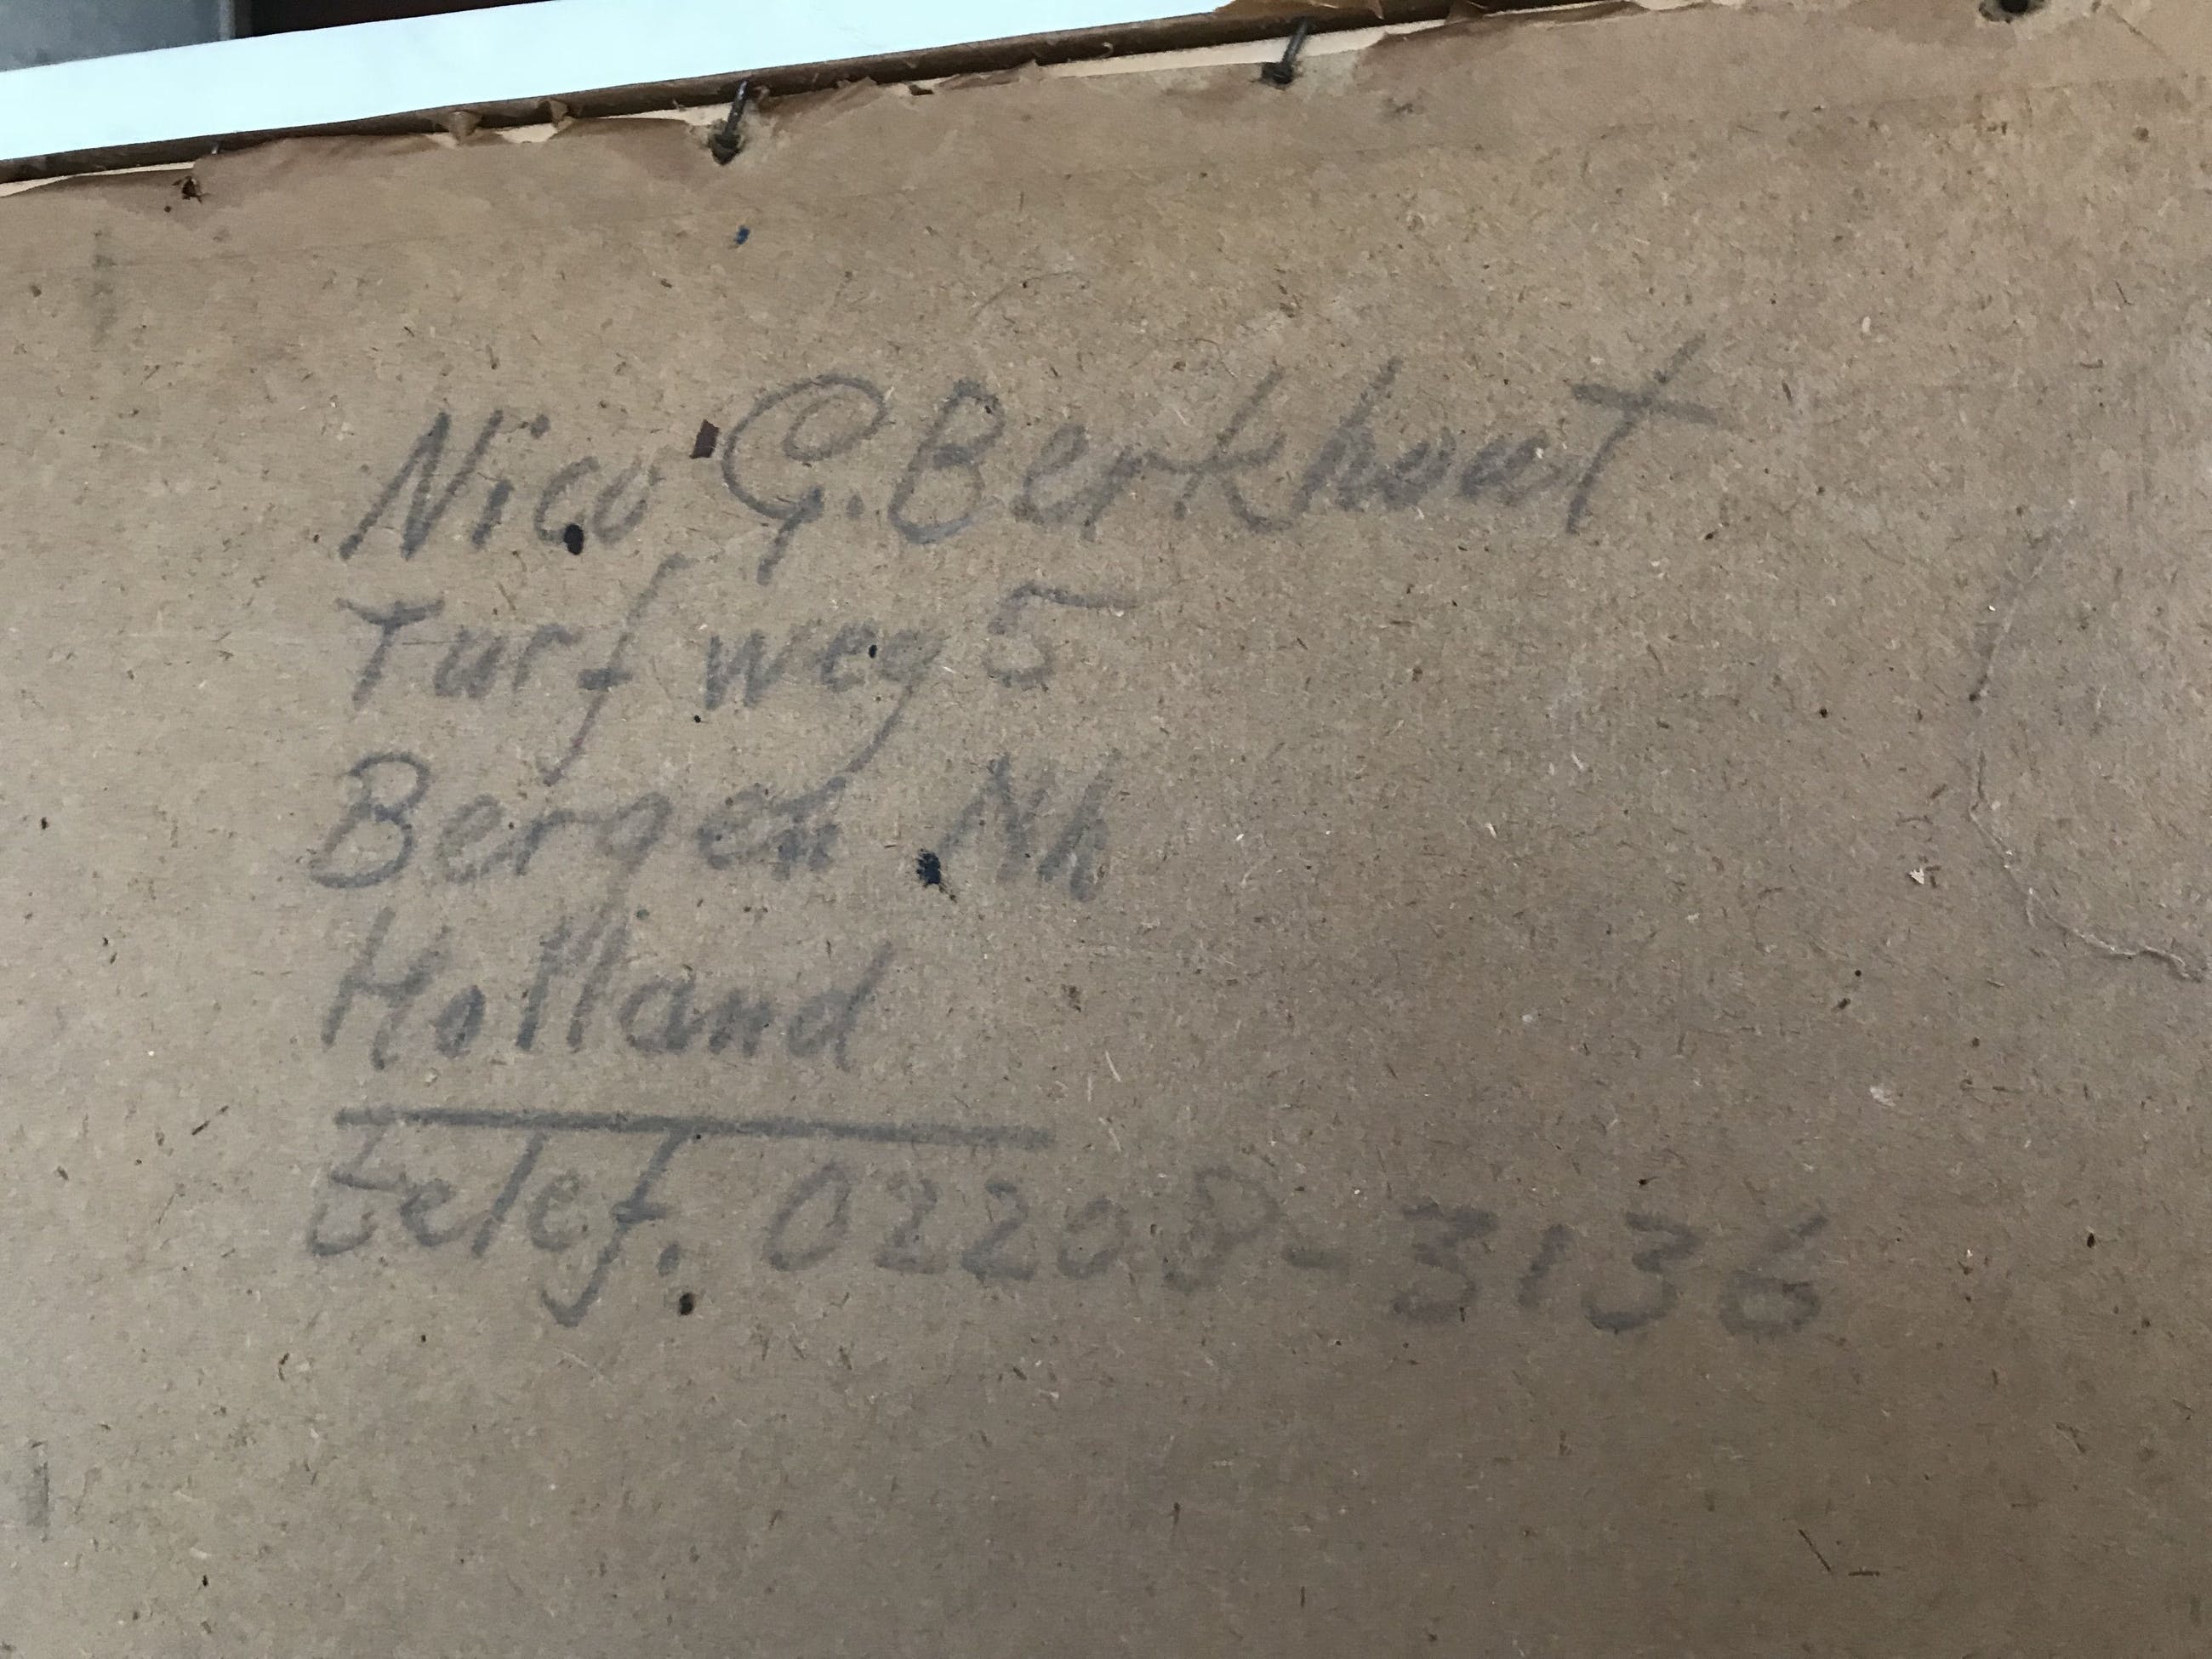 Nico G. Berkhout
Turfweg 5
Bergen Nh
Holland
telef. 02208-3136